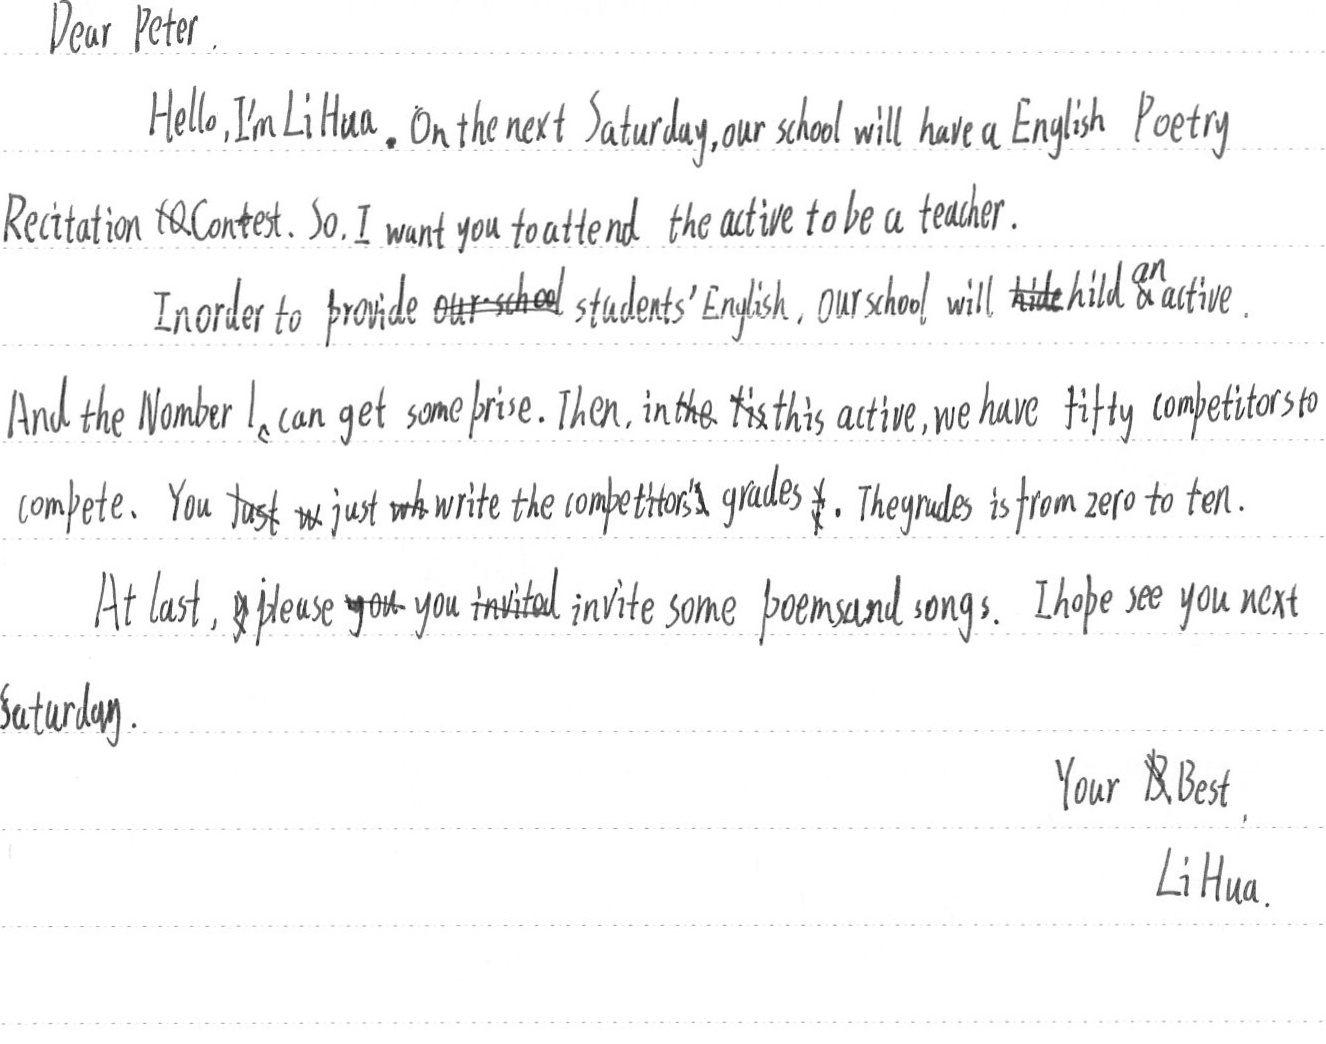 Dear Peter.
Hello, I'm Li Hua. On the next Saturday, our school will have a English Poetry
Recitation Contest. So, I want you to attend the active to be a teacher.
In order to provide our school students' English, our school will hide hild an active.
And the Nomber 1, can get some prise. Then, in the tis this active, we have fifty competitors to
compete. You just just write the competitor's grades. The grades is from zero to ten.
At last, please you you invited invite some poems and songs. I hope see you next
Saturday.
Your Best,
Li Hua.